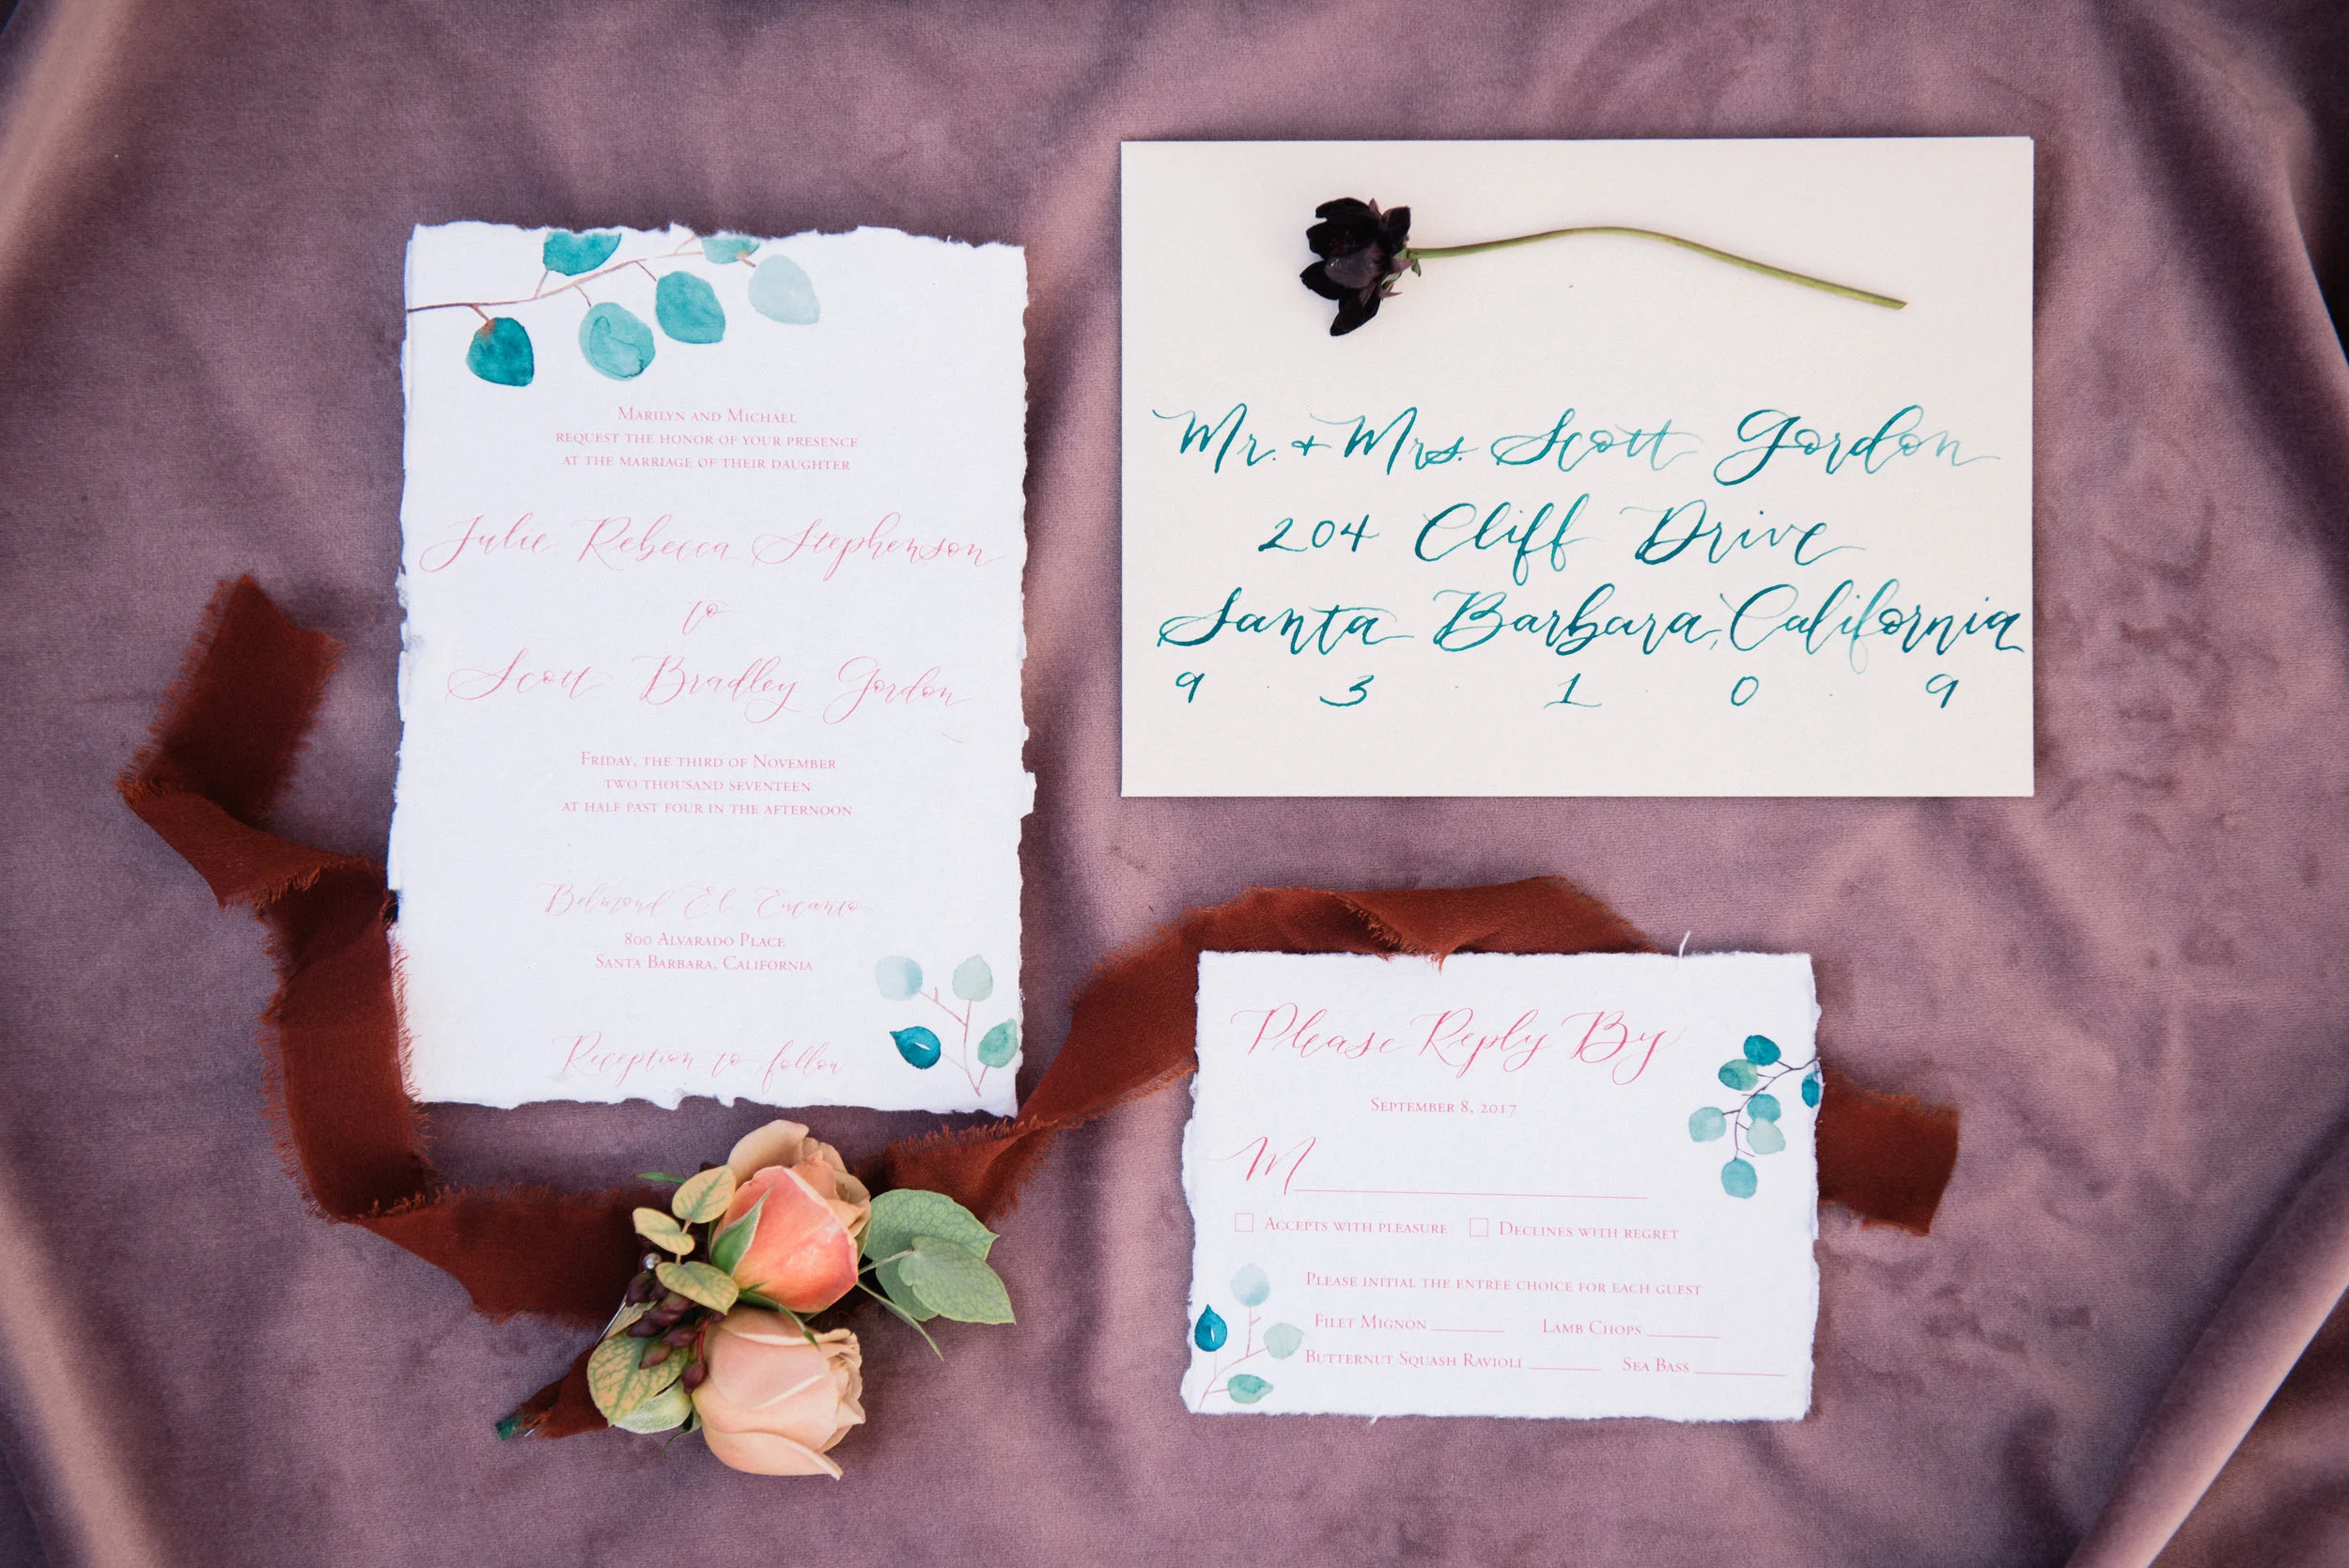 Marilyn and Michael
request the honor of your presence
at the marriage of their daughter
Julie Rebecca Stephenson
to
Scott Bradley Gordon
Friday, the third of November
two thousand seventeen
at half past four in the afternoon
Belmond El Encanto
800 Alvarado Place
Santa Barbara, California
Reception to follow
Mr. + Mrs. Scott Gordon
204 Cliff Drive
Santa Barbara, California
9 · 3 · 1 · 0 · 9
Please Reply By
September 8, 2017
M
Accepts with pleasure Declines with regret
Please initial the entree choice for each guest
Filet Mignon Lamb Chops
Butternut Squash Ravioli Sea Bass